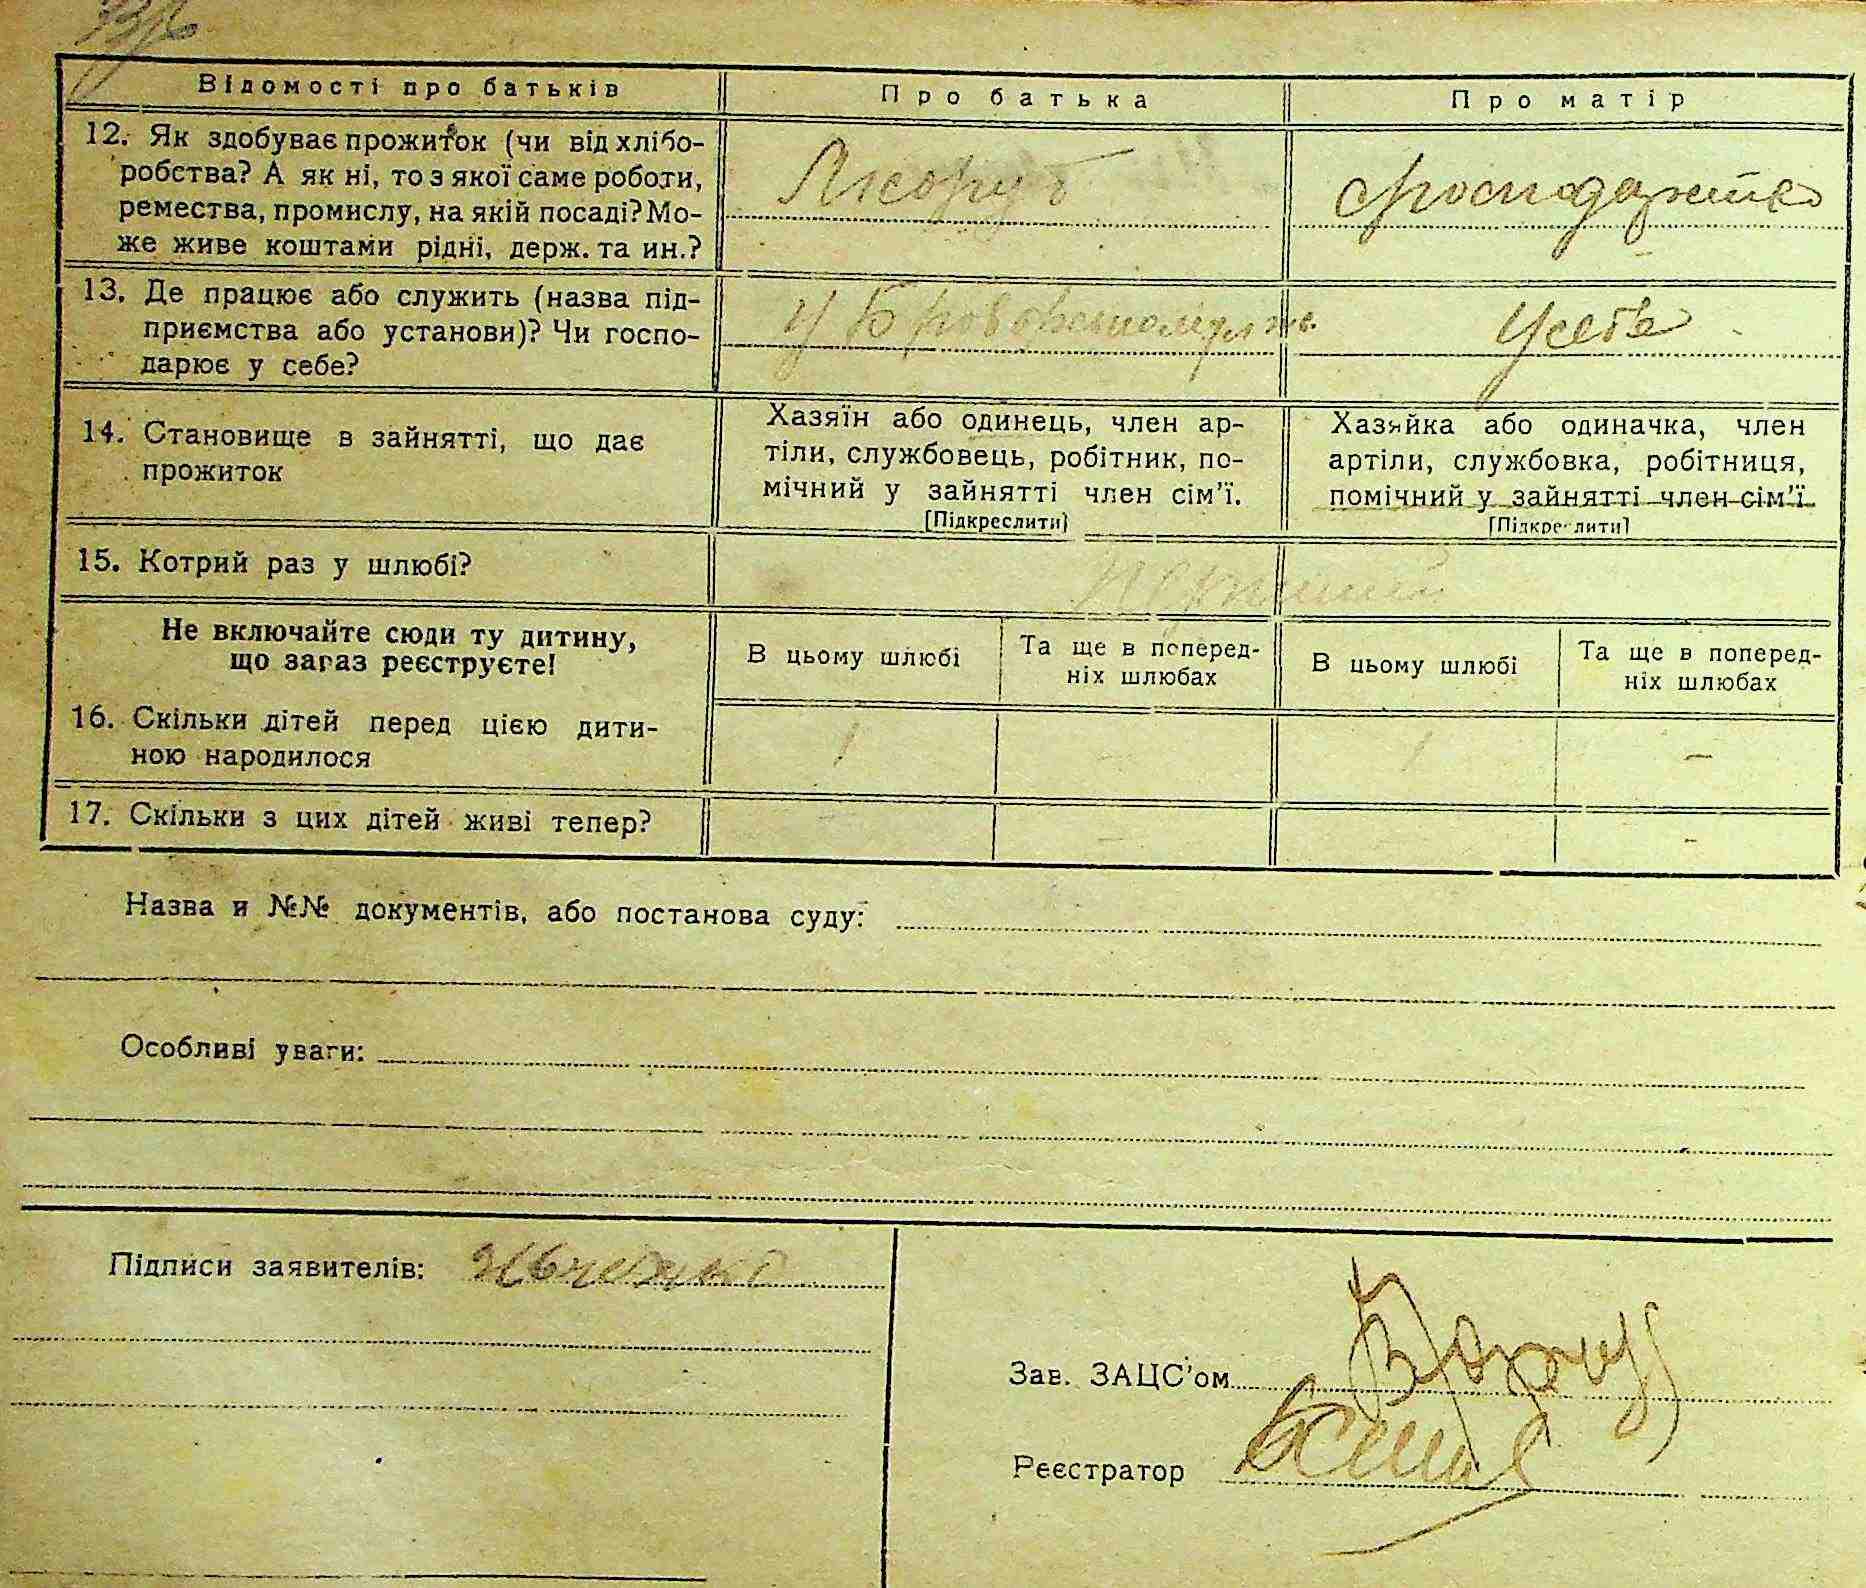 Відомості про батьків
Про батька
Про матір
12. Як здобуває прожиток (чи від хлібо-
робства? А як ні, то з якої саме роботи,
ремества, промислу, на якій посаді? Мо-
же живе коштами рідні, держ. та ин.?
Лісоруб
Господарство
13. Де працює або служить (назва під-
приємства або установи)? Чи госпо-
дарює у себе?
У
У себе
14. Становище в зайнятті, що дає
прожиток
Хазяїн або одинець, член ар-
тіли, службовець, робітник, по-
мічний у зайнятті член сім'ї.
[Підкреслити]
Хазяйка або одиначка, член
артіли, службовка, робітниця,
помічний у зайнятті член сім'ї
[Підкреслити]
15. Котрий раз у шлюбі?
Перший
Не включайте сюди ту дитину,
що зараз реєструєте!
В цьому шлюбі
Та ще в поперед-
ніх шлюбах
В цьому шлюбі
Та ще в поперед-
ніх шлюбах
16. Скільки дітей перед цією дити-
ною народилося
1
-
1
-
17. Скільки з цих дітей живі тепер?
-
-
-
-
Назва и №№ документів, або постанова суду:
Особливі уваги:
Підписи заявителів:
Зав. ЗАЦС'ом
Реєстратор